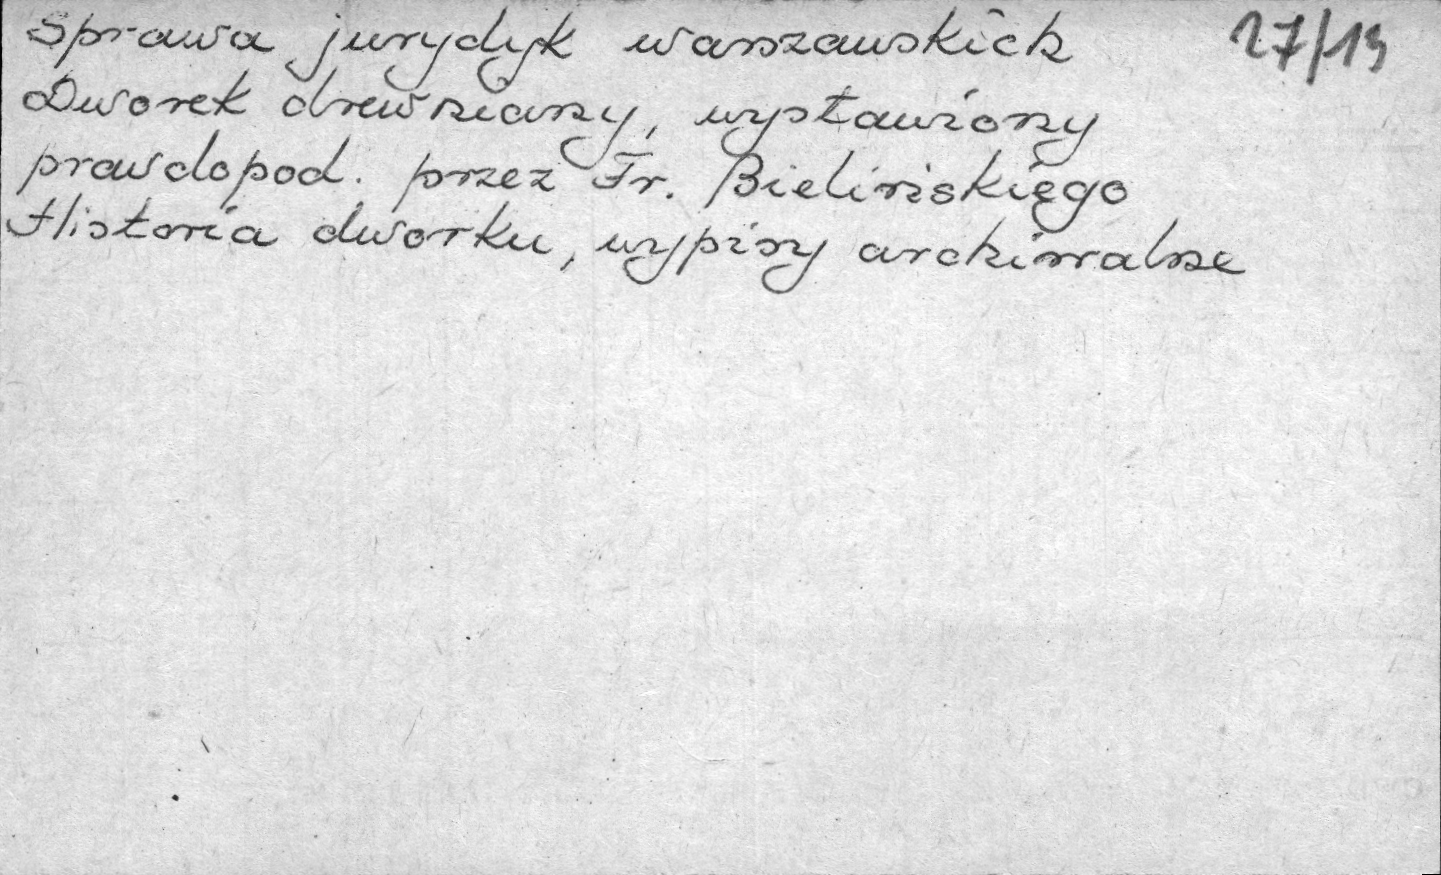 Sprawa jurydyk warszawskich 27/19
Dworek drewniany, wystawiony
prawdopod. przez Fr. Bielińskiego
Historia dworku, wypisy archiwalne